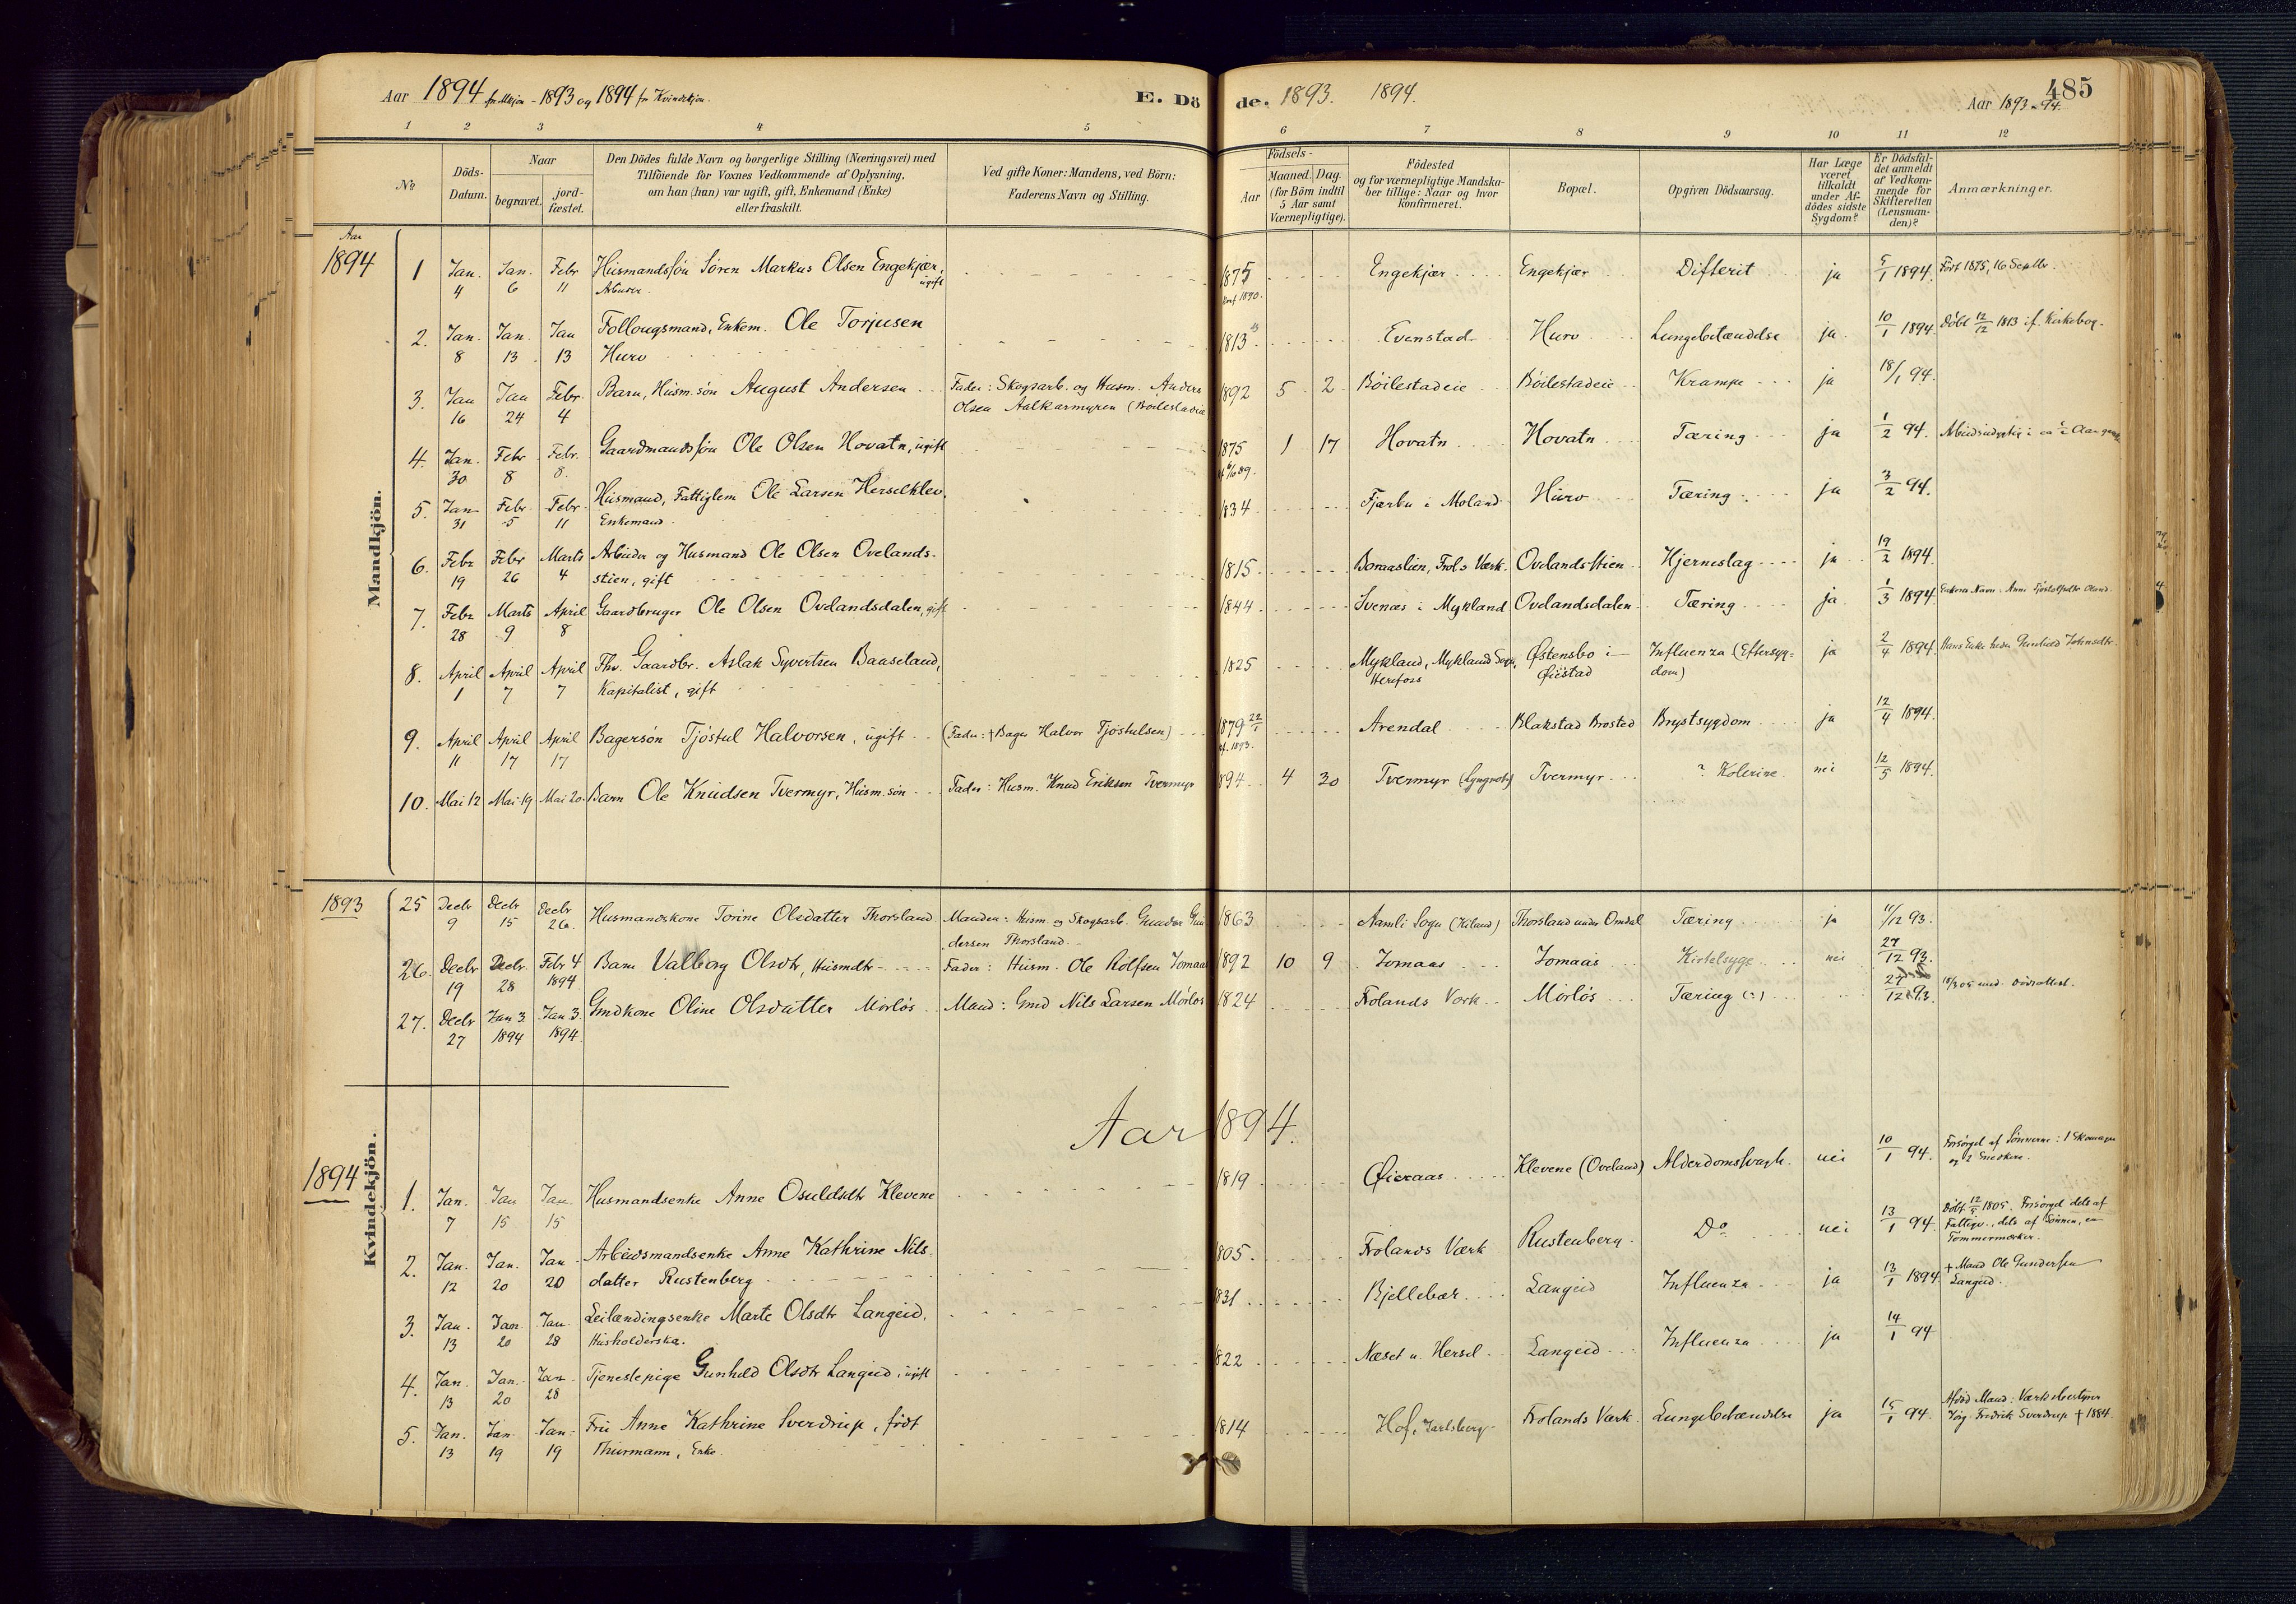 Aar 1894 for Mkjøn - 1893 og 1894 for Kvindekjøn.
E. Döde. 1893. 1894.
485
Aar 1893 - 94.
1 2 3 4 5 6 7 8 9 10 11 12
No
Döds-Datum.
Naar
begravet.
jordfæstet.
Den Dödes fulde Navn og borgerlige Stilling (Næringsvei) med
Tilföiende for Voxnes Vedkommende af Oplysning,
om han (hun) var ugift, gift, Enkemand (Enke)
eller fraskilt.
Ved gifte Koner: Mandens, ved Börn:
Faderens Navn og Stilling.
Födsels-
Aar
Maaned. Dag.
(for Börn indtil
5 Aar samt
Værnepligtige).
Födested
og for værnepligtige Mandska-
ber tillige: Naar og hvor
konfirmeret.
Bopæl.
Opgiven Dödsaarsag.
Har Læge
været
tilkaldt
under Af-
dödes sidste
Sygdom?
Er Dödsfal-
det anmeldt
af Vedkom-
mende for
Skifteretten
(Lensman-
den)?
Anmærkninger.
Aar
1894
Mandkjön.
1 Jan. 4 Jan. 6 Febr 11 Husmandssøn Søren Markus Olsen Engekjær, ugift Arbeider. 1875 Konf 1890. Engekjær Engekjær Difterit ja 5/1 1894. Født 1875, 16 Septbr.
2. Jan. 8 Jan. 13 Jan 13 Follougsmand, Enkem. Ole Torjusen Hurv 1813 Evenstad Hurv Lungebetændelse ja 10/1 1894. Døbt 12/12 1813 if. Kirkebog.
3. Jan 16 Jan 24 Febr. 4 Barn, Husm. søn August Andersen Fader: Skogsarb. og Husm. Anders Olsen Aalkarmyren (Böilestadeie 1892 5 2 Böilestadeie Böilestadeie Krampe ja 18/1 94.
4. Jan. 30 Febr 8 Febr. 8. Gaardmandssøn Ole Olsen Hovatn, ugift 1875 1 17 Hovatn Hovatn Tæring ja 1/2 94.
5. Jan 31 Febr 5 Febr 11 Husmand, Fattiglem Ole Larsen Herselklev, Enkemand 1834 Fjærbu i Moland Hurv Tæring ja 3/2 94.
6. Febr 19 Febr 26 Marts 4 Arbeider og Husmand Ole Olsen Ovelands-
stien, gift 1815 Boraaslien, Frol.s Værk. Ovelandsstien Hjerneslag ja 19/2 1894.
7. Febr 28 Marts 9 April 8 Gaardbruger Ole Olsen Ovelandsdalen, gift 1844 Svenæs i Mykland Ovelandsdalen Tæring ja 1/3 1894. Enkens Navn: Anne
8. April 1 April 7 April 7 Fhv. Gaardbr. Aslak Syvertsen Baaseland, Kapitalist, gift 1825 Mykland, Mykland Sogn, Herefoss Østensbo i Øiestad Influenza (Eftersyg-
dom) ja 2/4 1894. Hans Enke heder Gunhild
9. April 11 April 17 April 17 Bagersøn Tjöstul Halvorsen, ugift (Fader: † Bager Halvor Tjöstulsen) 1879 22/1 Arendal Blakstad Brosted Brystsygdom ja 12/4 1894.
10. Mai 12 Mai 19 Mai 20 Barn Ole Knudsen Tvermyr, Husm. søn Fader: Husm. Knud Eriksen Tvermyr 1894 4 30 Tvermyr Tvermyr ? Kolerine nei 12/5 1894.
1893
25 Decbr 9 Decbr 15 Decbr 26. Husmandskone Torine Olsdatter Thorsland Manden: Husm. og Skogsarb. Gunder Gun
dersen Thorsland. 1863 Aamli Sogn (Kiland) Thorsland under Omdal Tæring ja 11/12 93.
26. Decbr 19 Decbr. 28 Febr 4 1894 Barn Valborg Olsdtr, Husmdtr Fader: Husm. Ole Rolfsen Jomaas 1892 10 9 Jomaas Jomaas Kirtelsyge nei 27/12 93.
27. Decbr 27 Jan 3. 1894 Jan 3. 1894. Gmdkone Oline Olsdatter Mörlös Mand: Gmd Nils Larsen Mörlös 1824 Frolands Værk Mörlös Tæring (?) 27/12 93.
Aar 1894.
1894
Kvindekjön.
1. Jan. 7 Jan 15 Jan. 15 Husmandsenke Anne Osuldsdtr Klevene 1819 Øieraas Klevene (Oveland) Alderdomssvagh. nei 10/1 94. Forsørget af Sønnerne: 1 Skomager og 2 Snedkere.
2. Jan. 12 Jan. 20 Jan 20 Arbeidsmandsenke Anne Kathrine Nils-
datter Rustenberg 1805. Frolands Værk Rustenberg Do nei 13/1 94. Døbt 12/5 1805. Forsørget dels af Fattigv., dels af Sønnen, en Tømmermærker.
3. Jan. 13 Jan. 20 Jan 28 Leilændingsenke Marte Olsdtr Langeid, Husholderska. 1831 Bjellebær Langeid Influenza ja 13/1 1894. † Mand Ole Gundersen Langeid.
4. Jan. 13 Jan. 20 Jan 28 Tjenestepige Gunhild Olsdtr Langeid, ugift 1822 Næset u. Hersel Langeid Influenza ja 14/1 94
5. Jan. 13 Jan. 19 Jan. 19 Fru Anne Kathrine Sverdrup, født Thurmann, Enke. 1814 Hof, Jarlsberg Frolands Værk Lungebetændelse ja 15/1 94. Afdød Mand: Værksbestyrer Jørg. Fredrik Sverdrup † 1884.